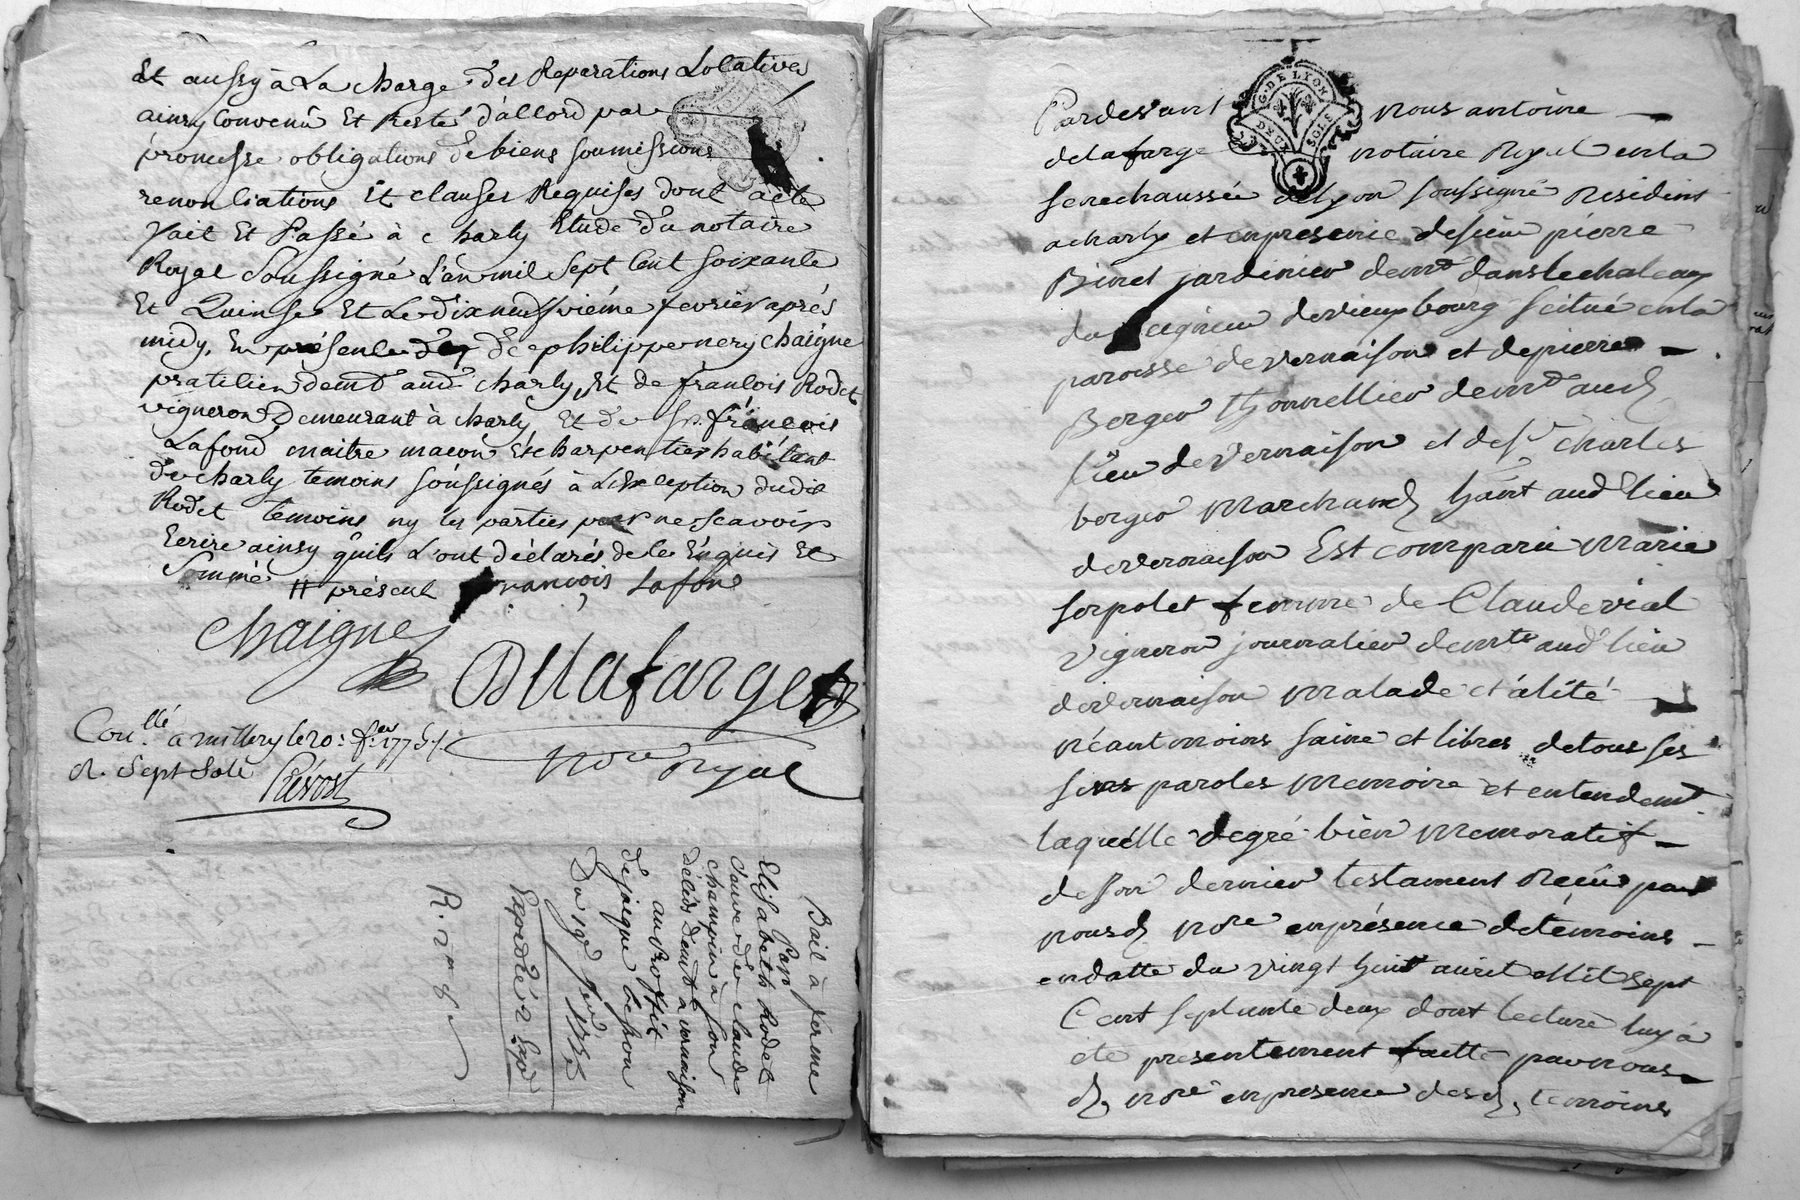 Et aussy à La charge des Reparations Locatives
ainsy Convenû Et Resté d'accord par
promesse obligations de biens soumissions
renonciations Et clauses Requises dont acte
fait Et Passé à charly Etude du notaire
Royal Soussigné L'an mil Sept Cent soixante
Et Quinse Et Le dix neufviéme fevrier aprés
midy, En présence de philippe nery chaigne
praticien demt aud charly, Et de francois Rodet
vigneron Demeurant à charly Et de Sr. françois
Lafond maitre macon Et charpentier habitant
de charly temoins soussignés à L'Exception dudit
Rodet temoins ny les parties pour ne scavoir
Ecrire ainsy qu'ils L'ont déclarés de ce Enquis Et
Sommé # présent françois Lafon
Chaigne
Delafarge
nore royal
Con.llé a millery le 20: f.er 1775 /.
R. Sept Sols
Prévost
Bail à ferme
Par
Elisabeth Rodet
veuve de claude
champin à son
décès demt à vernaison
au Proffit
de jacque besson
Du 19e fevr 1775
Expédié 2 Exp
G. DE LYON
DEUX SOLS
Pardevant nous antoine
delafarge notaire Royal en la
senechaussée de Lyon soussigné Residint
a charly et en presence de sieur pierre
Binet jardinier demt dans le chateaux
du seigneur de vieux bourg scitué en la
paroisse de vernaison et de pierre
Berger thonnellier demt aud
lieu de vernaison et de sr charles
berger marchand hant aud lieu
de vernaison Est comparu marie
sorpolet femme de Claude vial
vigneron journalier demrts aud lieu
de vernaison malade et alité
néant moins saine et libres de tous ses
sens paroles memoire et entendemt
laquélle de gré bien memoratif
de son dernier testament Recû par
nousd nore en présence de témoins
en datte du vingt huit avril Mil sept
Cent septante deux dont lecture luy à
eté presentement faitte par nous
d. nore en presence desd. temoins